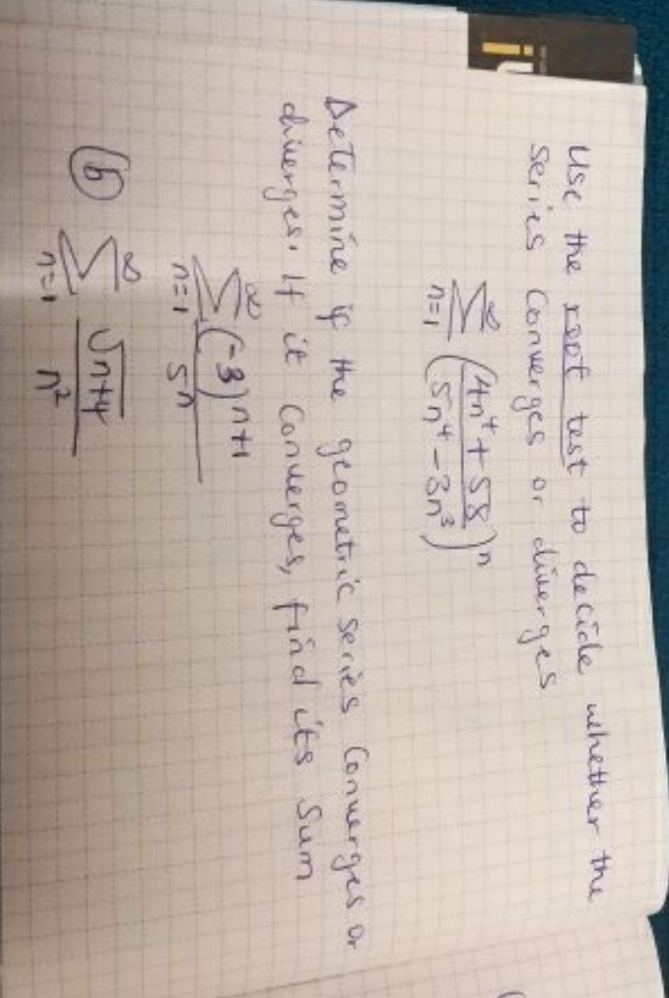 Use the root test to decide whether the
series converges or diverges
∑_{n=1}^{∞} ((4n⁴ + 58)/(5n⁴ - 3n³))ⁿ
Determine if the geometric series converges or
diverges. If it converges, find its sum
∑_{n=1}^{∞} (-3)^{n+1}/5n
(b) ∑_{n=1}^{∞} √(n+4)/n²